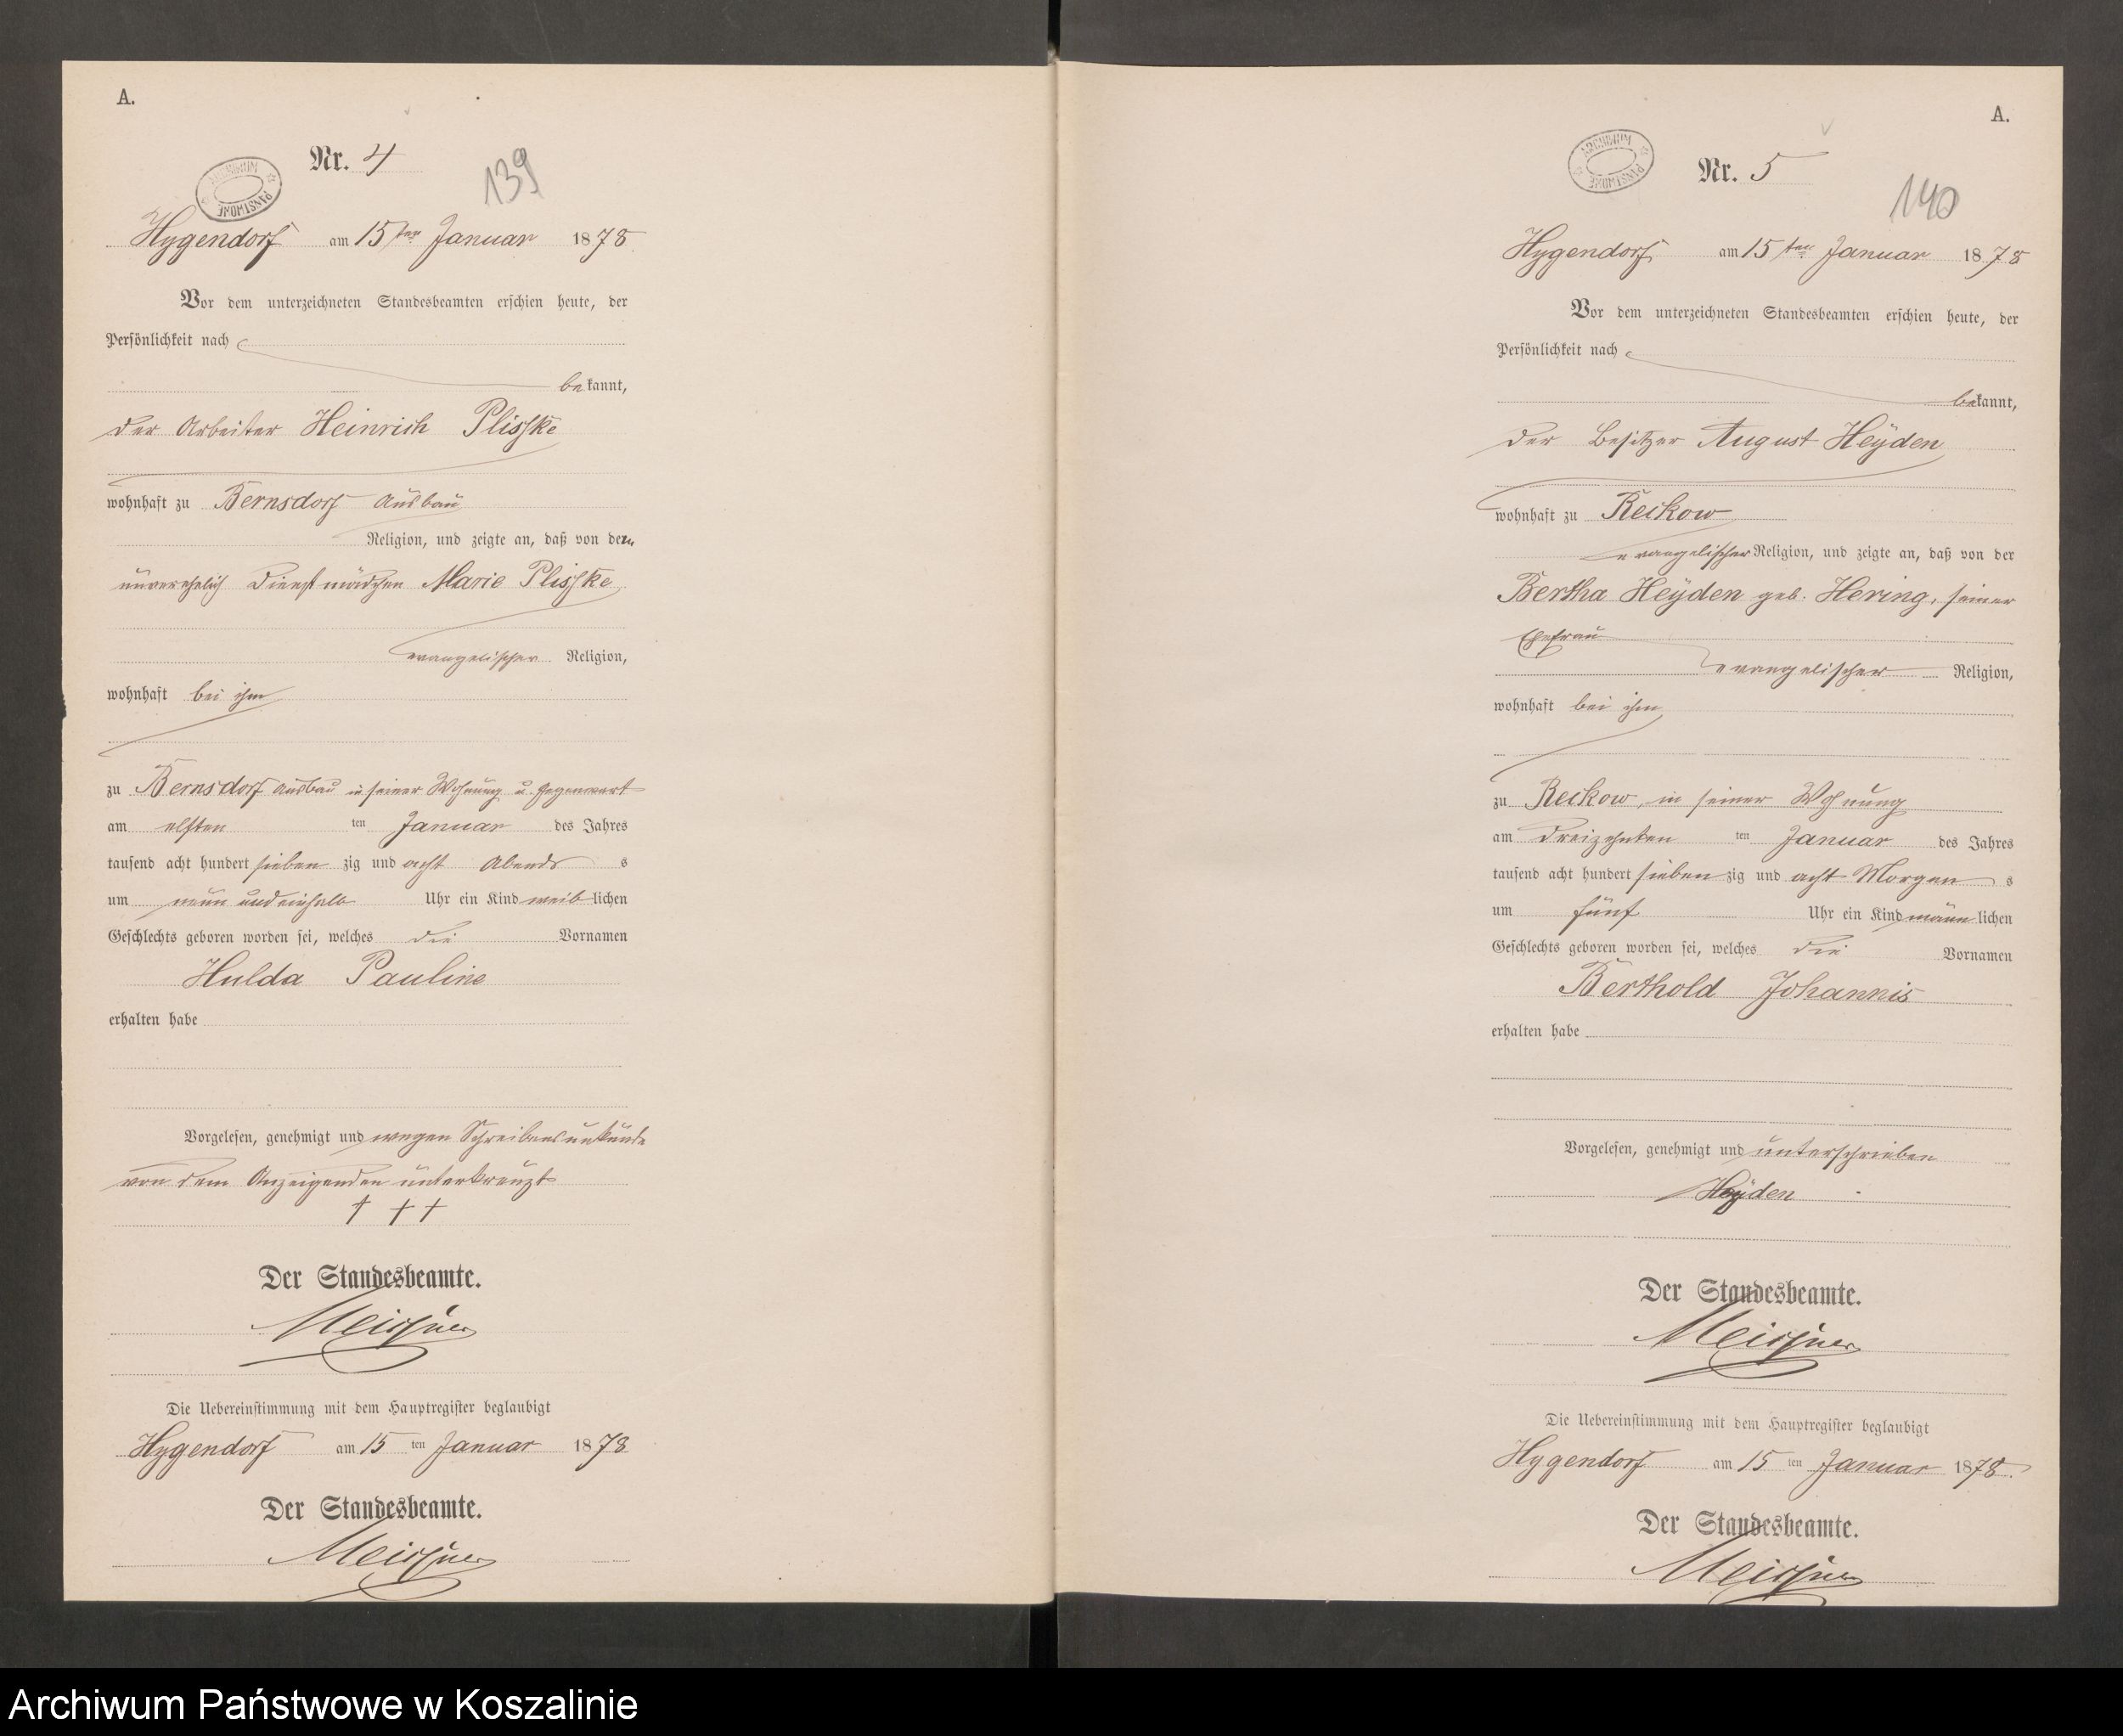 A.
Nr. 4
139
ARCHIWUM PAŃSTWOWE
Hygendorf am 15ten Januar 1878
Vor dem unterzeichneten Standesbeamten erschien heute, der
Persönlichkeit nach
bekannt,
der Arbeiter Heinrich Plisske
wohnhaft zu Bernsdorf Ausbau
Religion, und zeigte an, daß von dem
unverehelich Dienstmädchen Marie Plisske
evangelischer Religion,
wohnhaft bei ihm
zu Bernsdorf Ausbau in seiner Wohnung u. Gegenwart
am elften ten Januar des Jahres
tausend acht hundert sieben zig und acht Abends s
um neun und einhalb Uhr ein Kind weiblichen
Geschlechts geboren worden sei, welches die Vornamen
Hulda Pauline
erhalten habe
Vorgelesen, genehmigt und wegen Schreibensunkunde
von dem Anzeigenden unterkreuzt
† † †
Der Standesbeamte.
Meissner
Die Uebereinstimmung mit dem Hauptregister beglaubigt
Hygendorf am 15 ten Januar 1878
Der Standesbeamte.
Meissner
A.
Nr. 5
140
ARCHIWUM PAŃSTWOWE
Hygendorf am 15ten Januar 1878
Vor dem unterzeichneten Standesbeamten erschien heute, der
Persönlichkeit nach
bekannt,
der Besitzer August Heÿden
wohnhaft zu Reckow
evangelischer Religion, und zeigte an, daß von der
Bertha Heÿden geb. Hering, seiner
Ehefrau
evangelischer Religion,
wohnhaft bei ihm
zu Reckow, in seiner Wohnung
am dreizehnten ten Januar des Jahres
tausend acht hundert sieben zig und acht Morgen s
um fünf Uhr ein Kind männlichen
Geschlechts geboren worden sei, welches die Vornamen
Berthold Johannis
erhalten habe
Vorgelesen, genehmigt und unterschrieben
Heÿden
Der Standesbeamte.
Meissner
Die Uebereinstimmung mit dem Hauptregister beglaubigt
Hygendorf am 15 ten Januar 1878.
Der Standesbeamte.
Meissner
Archiwum Państwowe w Koszalinie